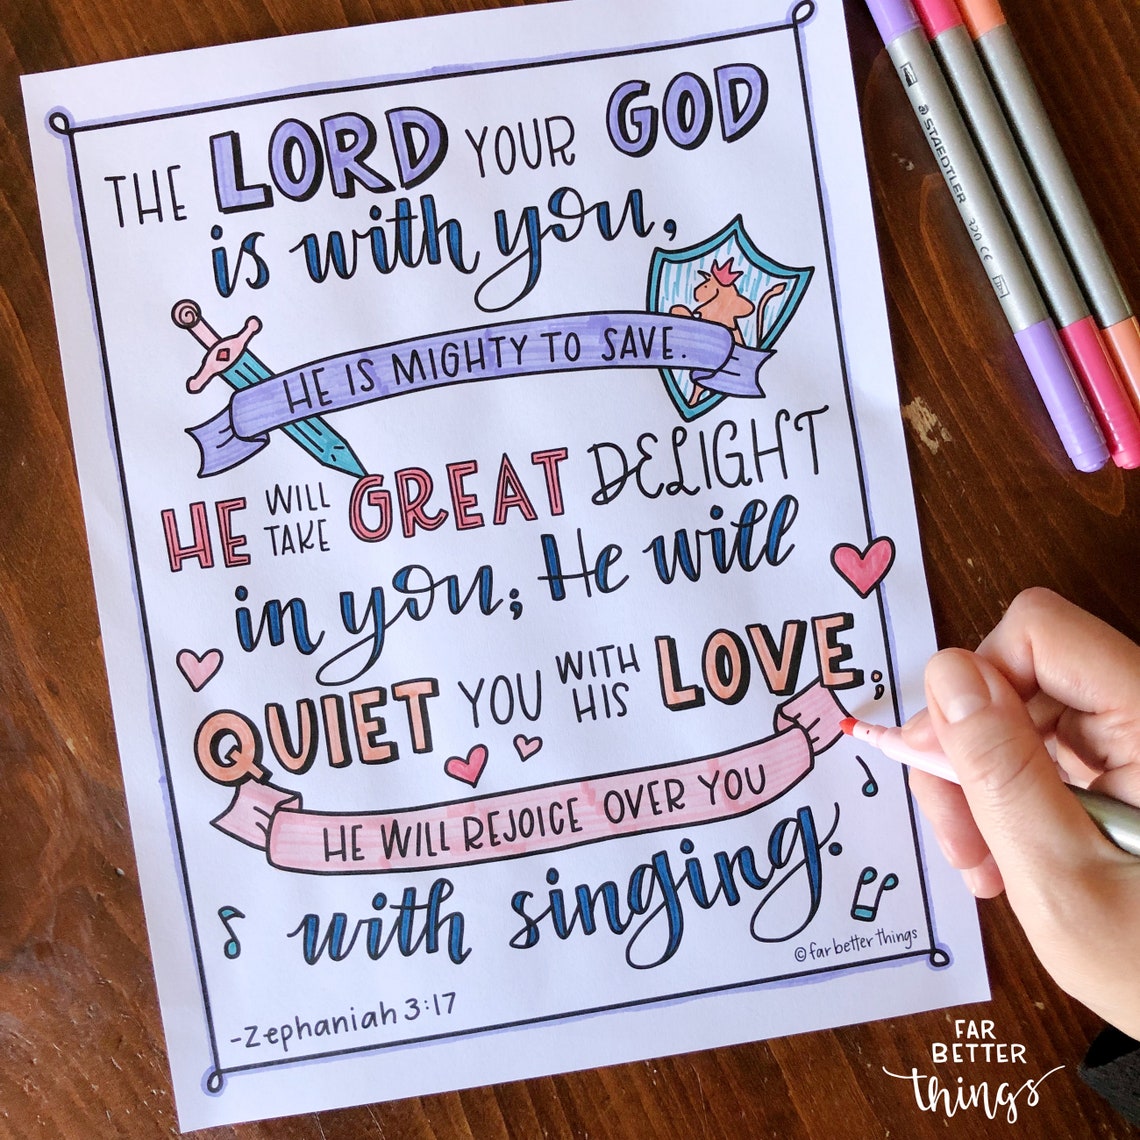 THE LORD YOUR GOD
is with you,
HE IS MIGHTY TO SAVE.
HE WILL TAKE GREAT DELIGHT
in you; He will
QUIET YOU WITH HIS LOVE;
HE WILL REJOICE OVER YOU
with singing.
©far better things
-Zephaniah 3:17
STAEDTLER 320 CE
FAR
BETTER
things